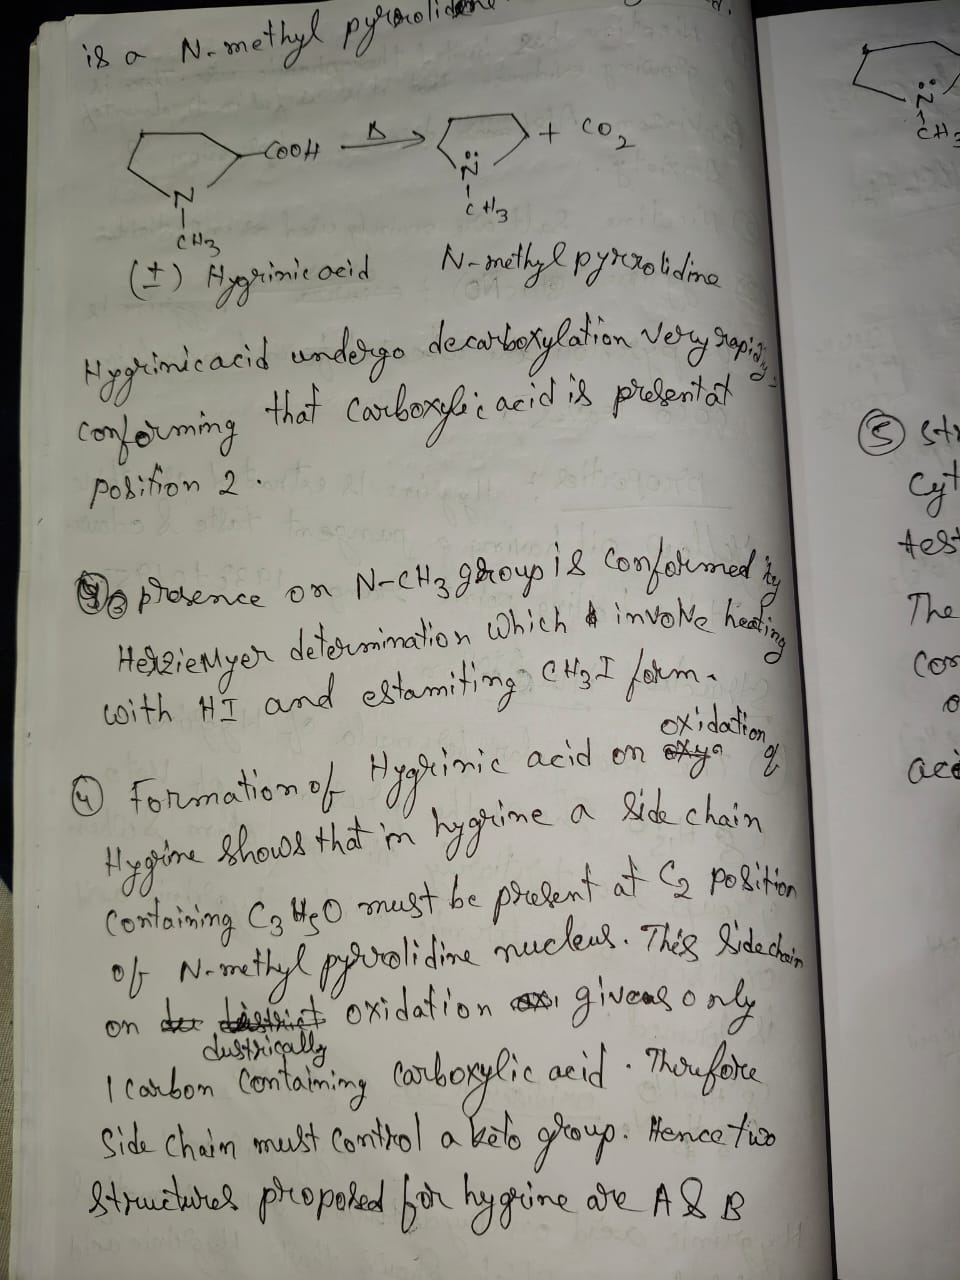 is a N-methyl pyrrolidine
COOH Δ + CO2
N
CH3
N
CH3
(±) Hygrinic acid N-methyl pyrrolidine
Hygrinic acid undergo decarboxylation very rapidly
conforming that Carboxylic acid is present at
position 2.
3 presence on N-CH3 group is conformed by
HerzieMyer determination which involve heating
with HI and estamiting CH3I form.
oxidation
④ Formation of Hygrinic acid on of
Hygrine shows that in hygrine a side chain
Containing C3H5O must be present at C2 position
of N-methyl pyrrolidine nucleus. This Sidechain
on oxidation gives only
dustrically
1 carbon Containing carboxylic acid. Therefore
Side chain must Control a keto group. Hence two
Structures proposed for hygrine are A & B
N
CH3
⑤ str
Cyt
test
The
Con
o
aci